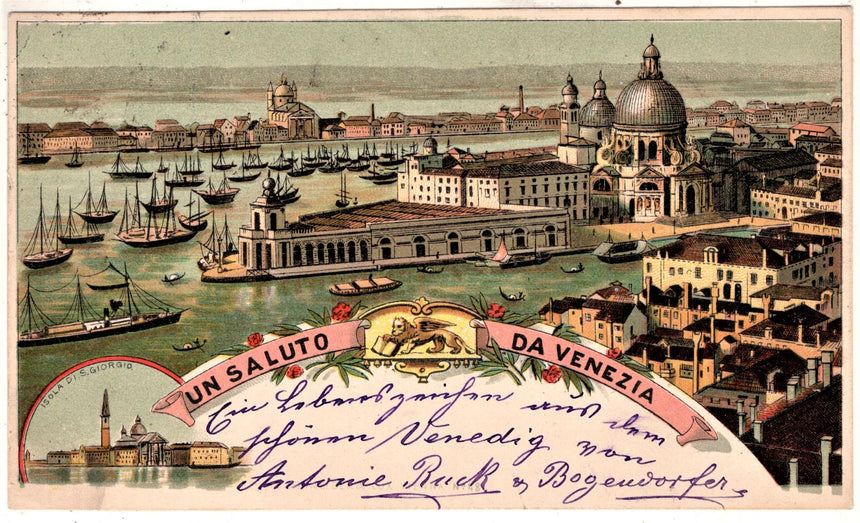 UN SALUTO DA VENEZIA
ISOLA DI S. GIORGIO
Ein Lebenszeichen aus dem
schönen Venedig von
Antonie Ruck & Bogendorfer.